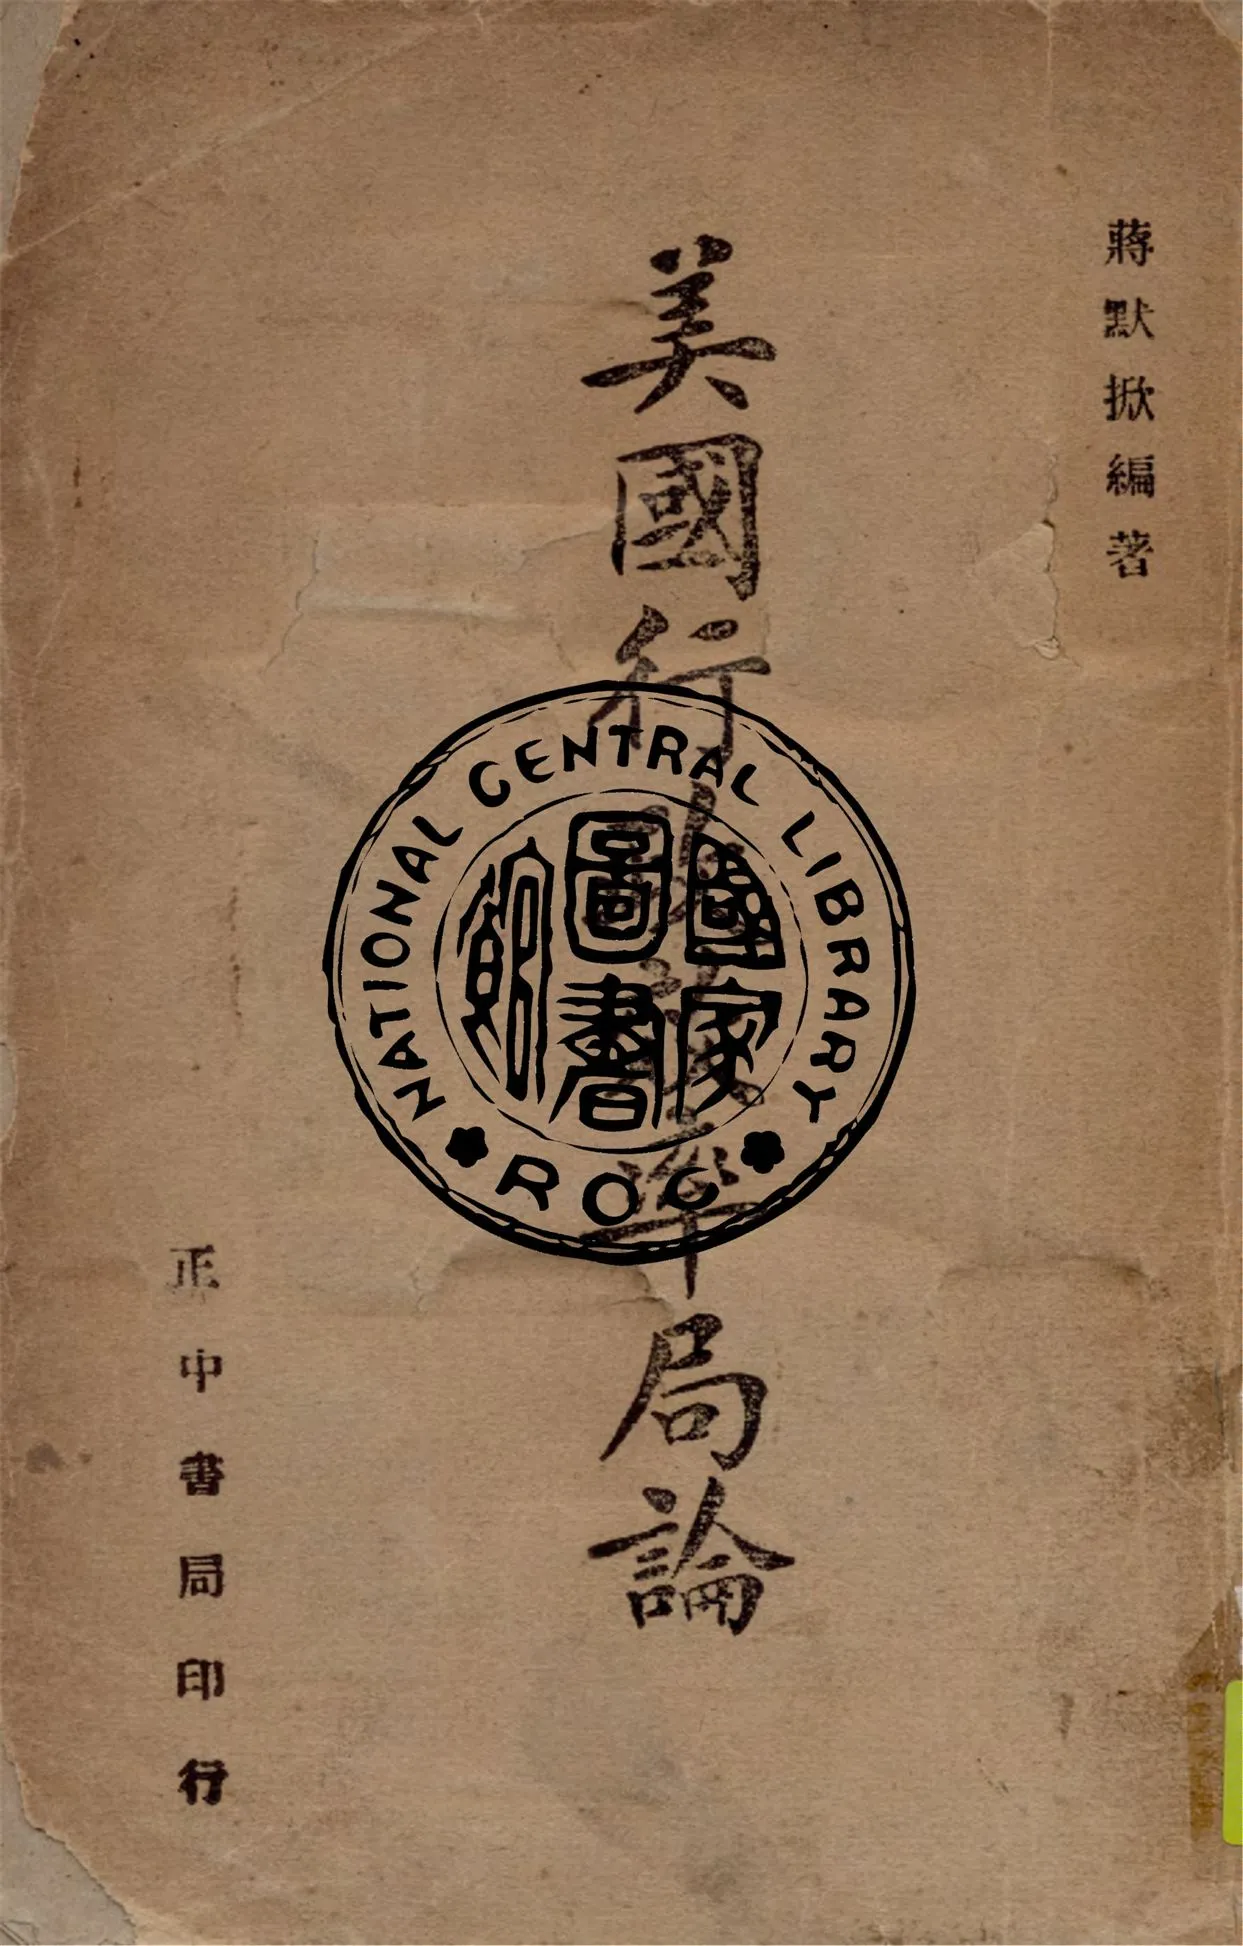 蔣默掀編著
美國行政效率局論
正中書局印行
NATIONAL CENTRAL LIBRARY
國家圖書館
ROC